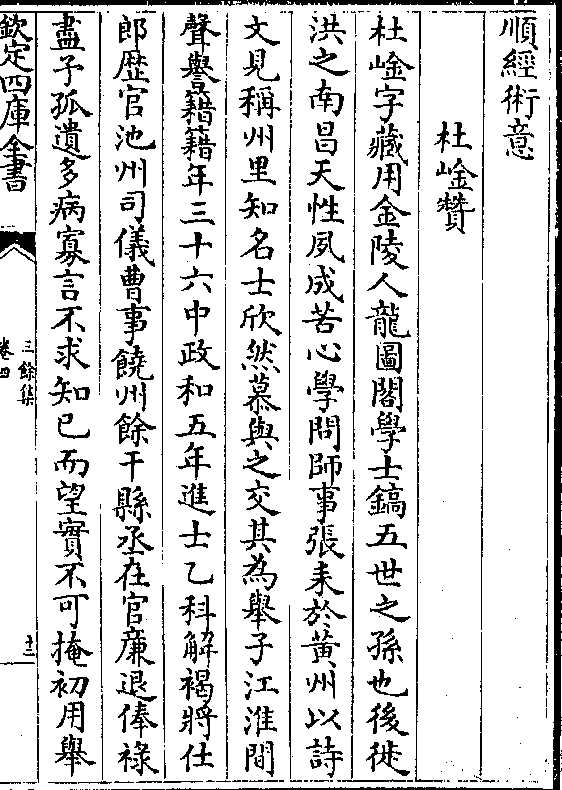 順經術意
杜崯贊
杜崯字藏用金陵人龍圖閣學士鎬五世之孫也後徙
洪之南昌天性夙成苦心學問師事張耒於黃州以詩
文見稱州里知名士欣然慕與之交其為舉子江淮間
聲譽籍籍年三十六中政和五年進士乙科解褐將仕
郎歴官池州司儀曹事饒州餘干縣丞在官亷退俸祿
盡予孤遺多病寡言不求知已而望實不可掩初用舉
欽定四庫全書
三餘集
卷四
十三